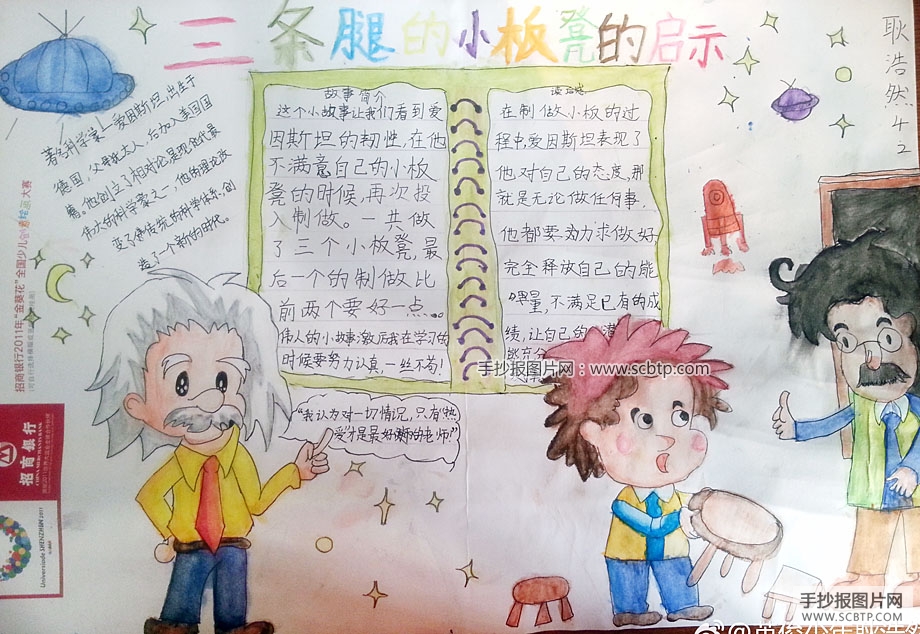 三条腿的小板凳的启示
耿浩然42
著名科学家—爱因斯坦,出生于
德国,父母犹太人,后加入美国国
籍。他创立了相对论,是现代最
伟大的科学家之一,他的理论改
变了传统的科学体系,创
造了一个新的时代。
故事简介
这个小故事让我们看到爱
因斯坦的韧性,在他
不满意自己的小板
凳的时候,再次投
入制做。一共做
了三个小板凳,最
后一个的制做比
前两个要好一点。
伟人的小故事激励我在学习的
时候要努力认真,一丝不苟!
在制做小板的过
程中,爱因斯坦表现了
他对自己的态度,那
就是无论做任何事,
他都要力求做好,
完全释放自己的能
量,不满足已有的成
绩,让自己的
能充分
手抄报图片网:www.scbtp.com
“我认为对一切情况,只有“热
爱”才是最好的老师!”
招商银行2011年“金葵花”全国少儿绘画大赛
招商银行
CHINA MERCHANTS BANK
Universiade SHENZHEN 2011
手抄报图片网
WWW.SCBTP.COM